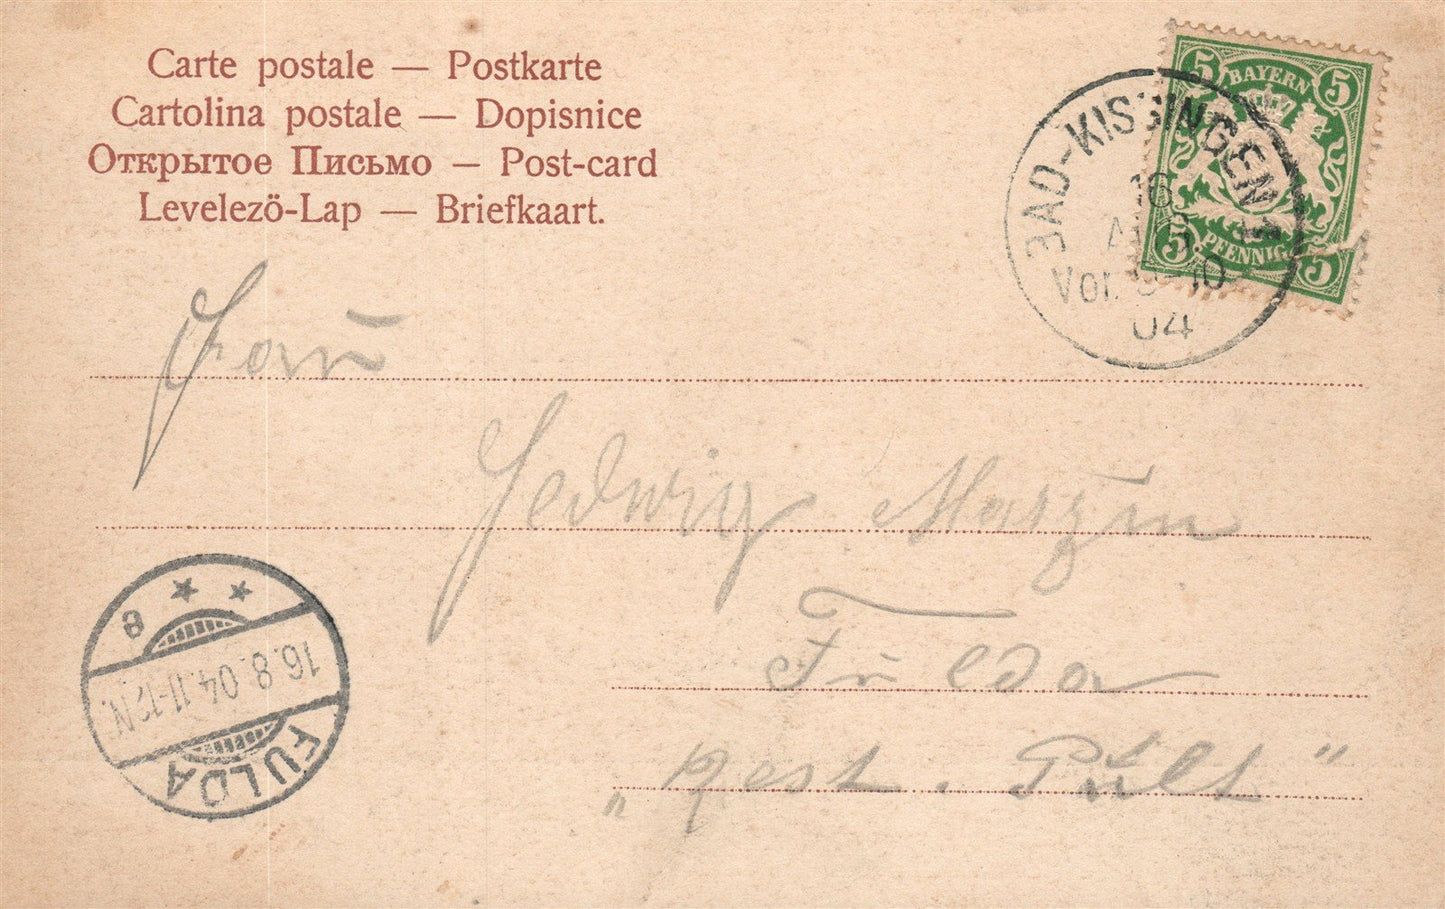 Carte postale — Postkarte
Cartolina postale — Dopisnice
Открытое Письмо — Post-card
Levelezö-Lap — Briefkaart.
5 BAYERN 5
5 PFENNIG 5
BAD-KISSINGEN 1
16
AUG
Vor. 9-10
04
Frau
Hedwig
Fulda
„Rest.
16.8.04.11-12N.
FULDA